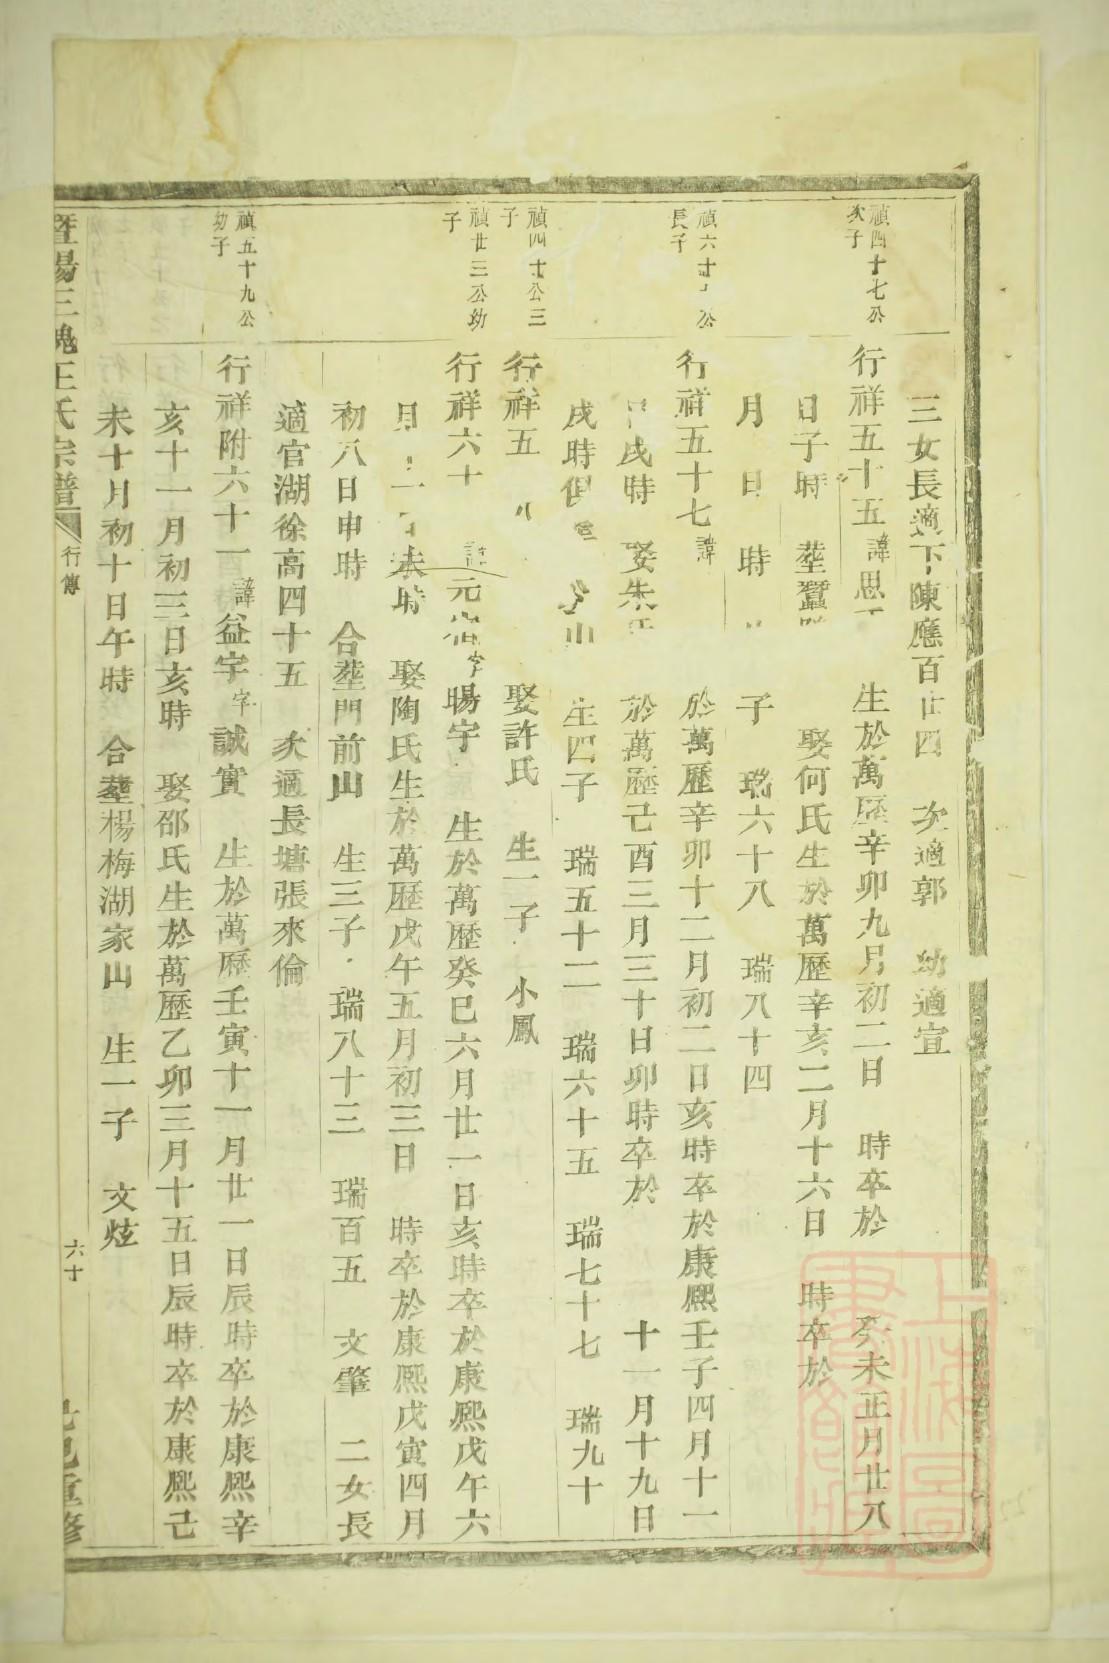 三女長適下陳應百廿四 次適郭 幼適宣
禎四十七公
次子
行祥五十五諱思 生於萬歷辛卯九月初二日 時卒於 癸未正月廿八
日子時 塟蠶 娶何氏生於萬歷辛亥二月十六日 時卒於
月 日 時 子 瑞六十八 瑞八十四
禎六十 公
長子
行祥五十七諱 於萬歷辛卯十二月初二日亥時卒於康熙壬子四月十一
戌時 娶朱氏 於萬歷己酉三月三十日卯時卒於 十一月十九日
戌時俱 山 生四子 瑞五十二 瑞六十五 瑞七十七 瑞九十
禎四十公三
子
行祥五 八 娶許氏 生一子 小鳳
禎廿三公幼
子
行祥六十 諱元 字暘宇 生於萬歷癸巳六月廿一日亥時卒於康熙戊午六
月 未時 娶陶氏生於萬歷戊午五月初三日 時卒於康熙戊寅四月
初八日申時 合塟門前山 生三子 瑞八十三 瑞百五 文肇 二女長
適官湖徐高四十五 次適長塘張來倫
禎五十九公
幼子
行祥附六十一諱益宇字誠實 生於萬歷壬寅十一月廿一日辰時卒於康熙辛
亥十一月初三日亥時 娶邵氏生於萬歷乙卯三月十五日辰時卒於康熙己
未十月初十日午時 合塟楊梅湖家山 生一子 文炫
暨陽三槐王氏宗譜 行傳 六十 重修
上海圖
書館藏